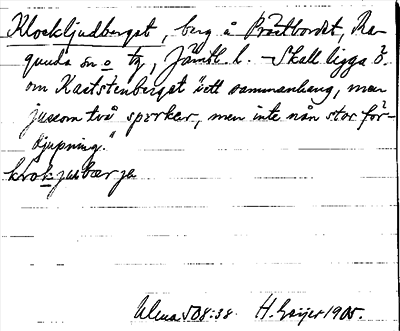 Klockljudberget, berg å Prästbordet, Ra-
gunda sn o tg, Jämtl. l. – Skall ligga ö.
om Kaststenberget "i ett sammanhang, men
jussom två sperker, men inte nån stor för-
djupning."
krokjusbærje
Ulma 508:38 H. Geijer 1905.